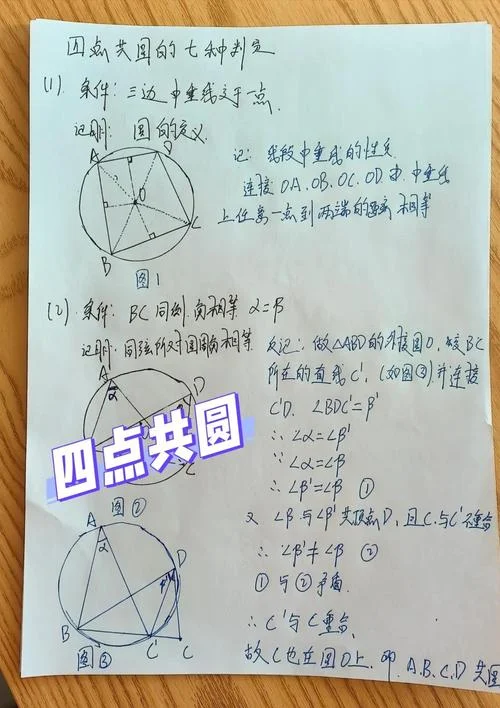 四点共圆的七种判定
(1). 条件: 三边中垂线交于一点.
证明: 圆的定义.
A
D
O
B
C
图1
证: 线段中垂线的性质
连接OA.OB.OC.OD 由中垂线
上任意一点到两端的距离相等
(2). 条件: BC同侧.角相等 α=β
证明: 同弦所对圆周角相等.
A
α
D
C
四点共圆
图②
反证: 做△ABD的外接圆O,交BC
所在的直线C', (如图③)并连接
C'D. ∠BDC'=β'
∴ ∠α=∠β'
∵ ∠α=∠β
∴ ∠β'=∠β ①
又 ∠β与∠β'共顶点D, 且C与C'不重合
∴ ∠β'≠∠β ②
①与②矛盾.
∴ C'与C重合.
故C也在圆O上. 即.A.B.C.D共圆
A
α
D
B
C'
C
图③